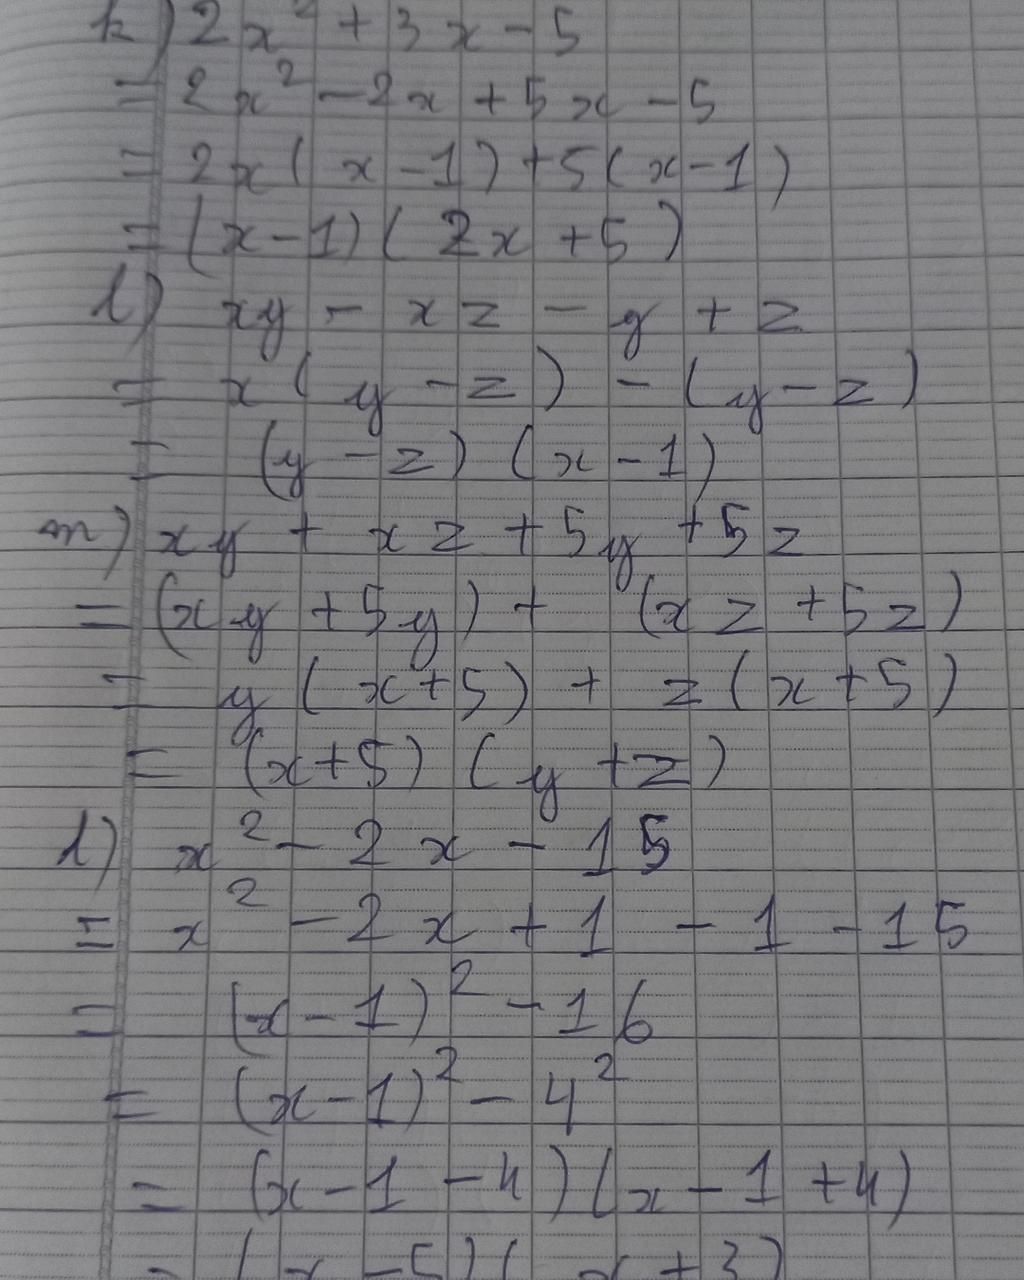 k) 2x² + 3x - 5
= 2x² - 2x + 5x - 5
= 2x( x - 1) + 5( x - 1 )
= (x - 1) ( 2x + 5 )
l) xy - xz - y + z
= x( y - z ) - ( y - z )
= (y - z) (x - 1)
m) xy + xz + 5y + 5z
= (xy + 5y) + (xz + 5z)
= y (x + 5) + z (x + 5)
= (x + 5) (y + z)
l) x² - 2x - 15
= x² - 2x + 1 - 1 - 15
= (x - 1)² - 16
= (x - 1)² - 4²
= (x - 1 - 4) (x - 1 + 4)
= (x - 5) ( x + 3)